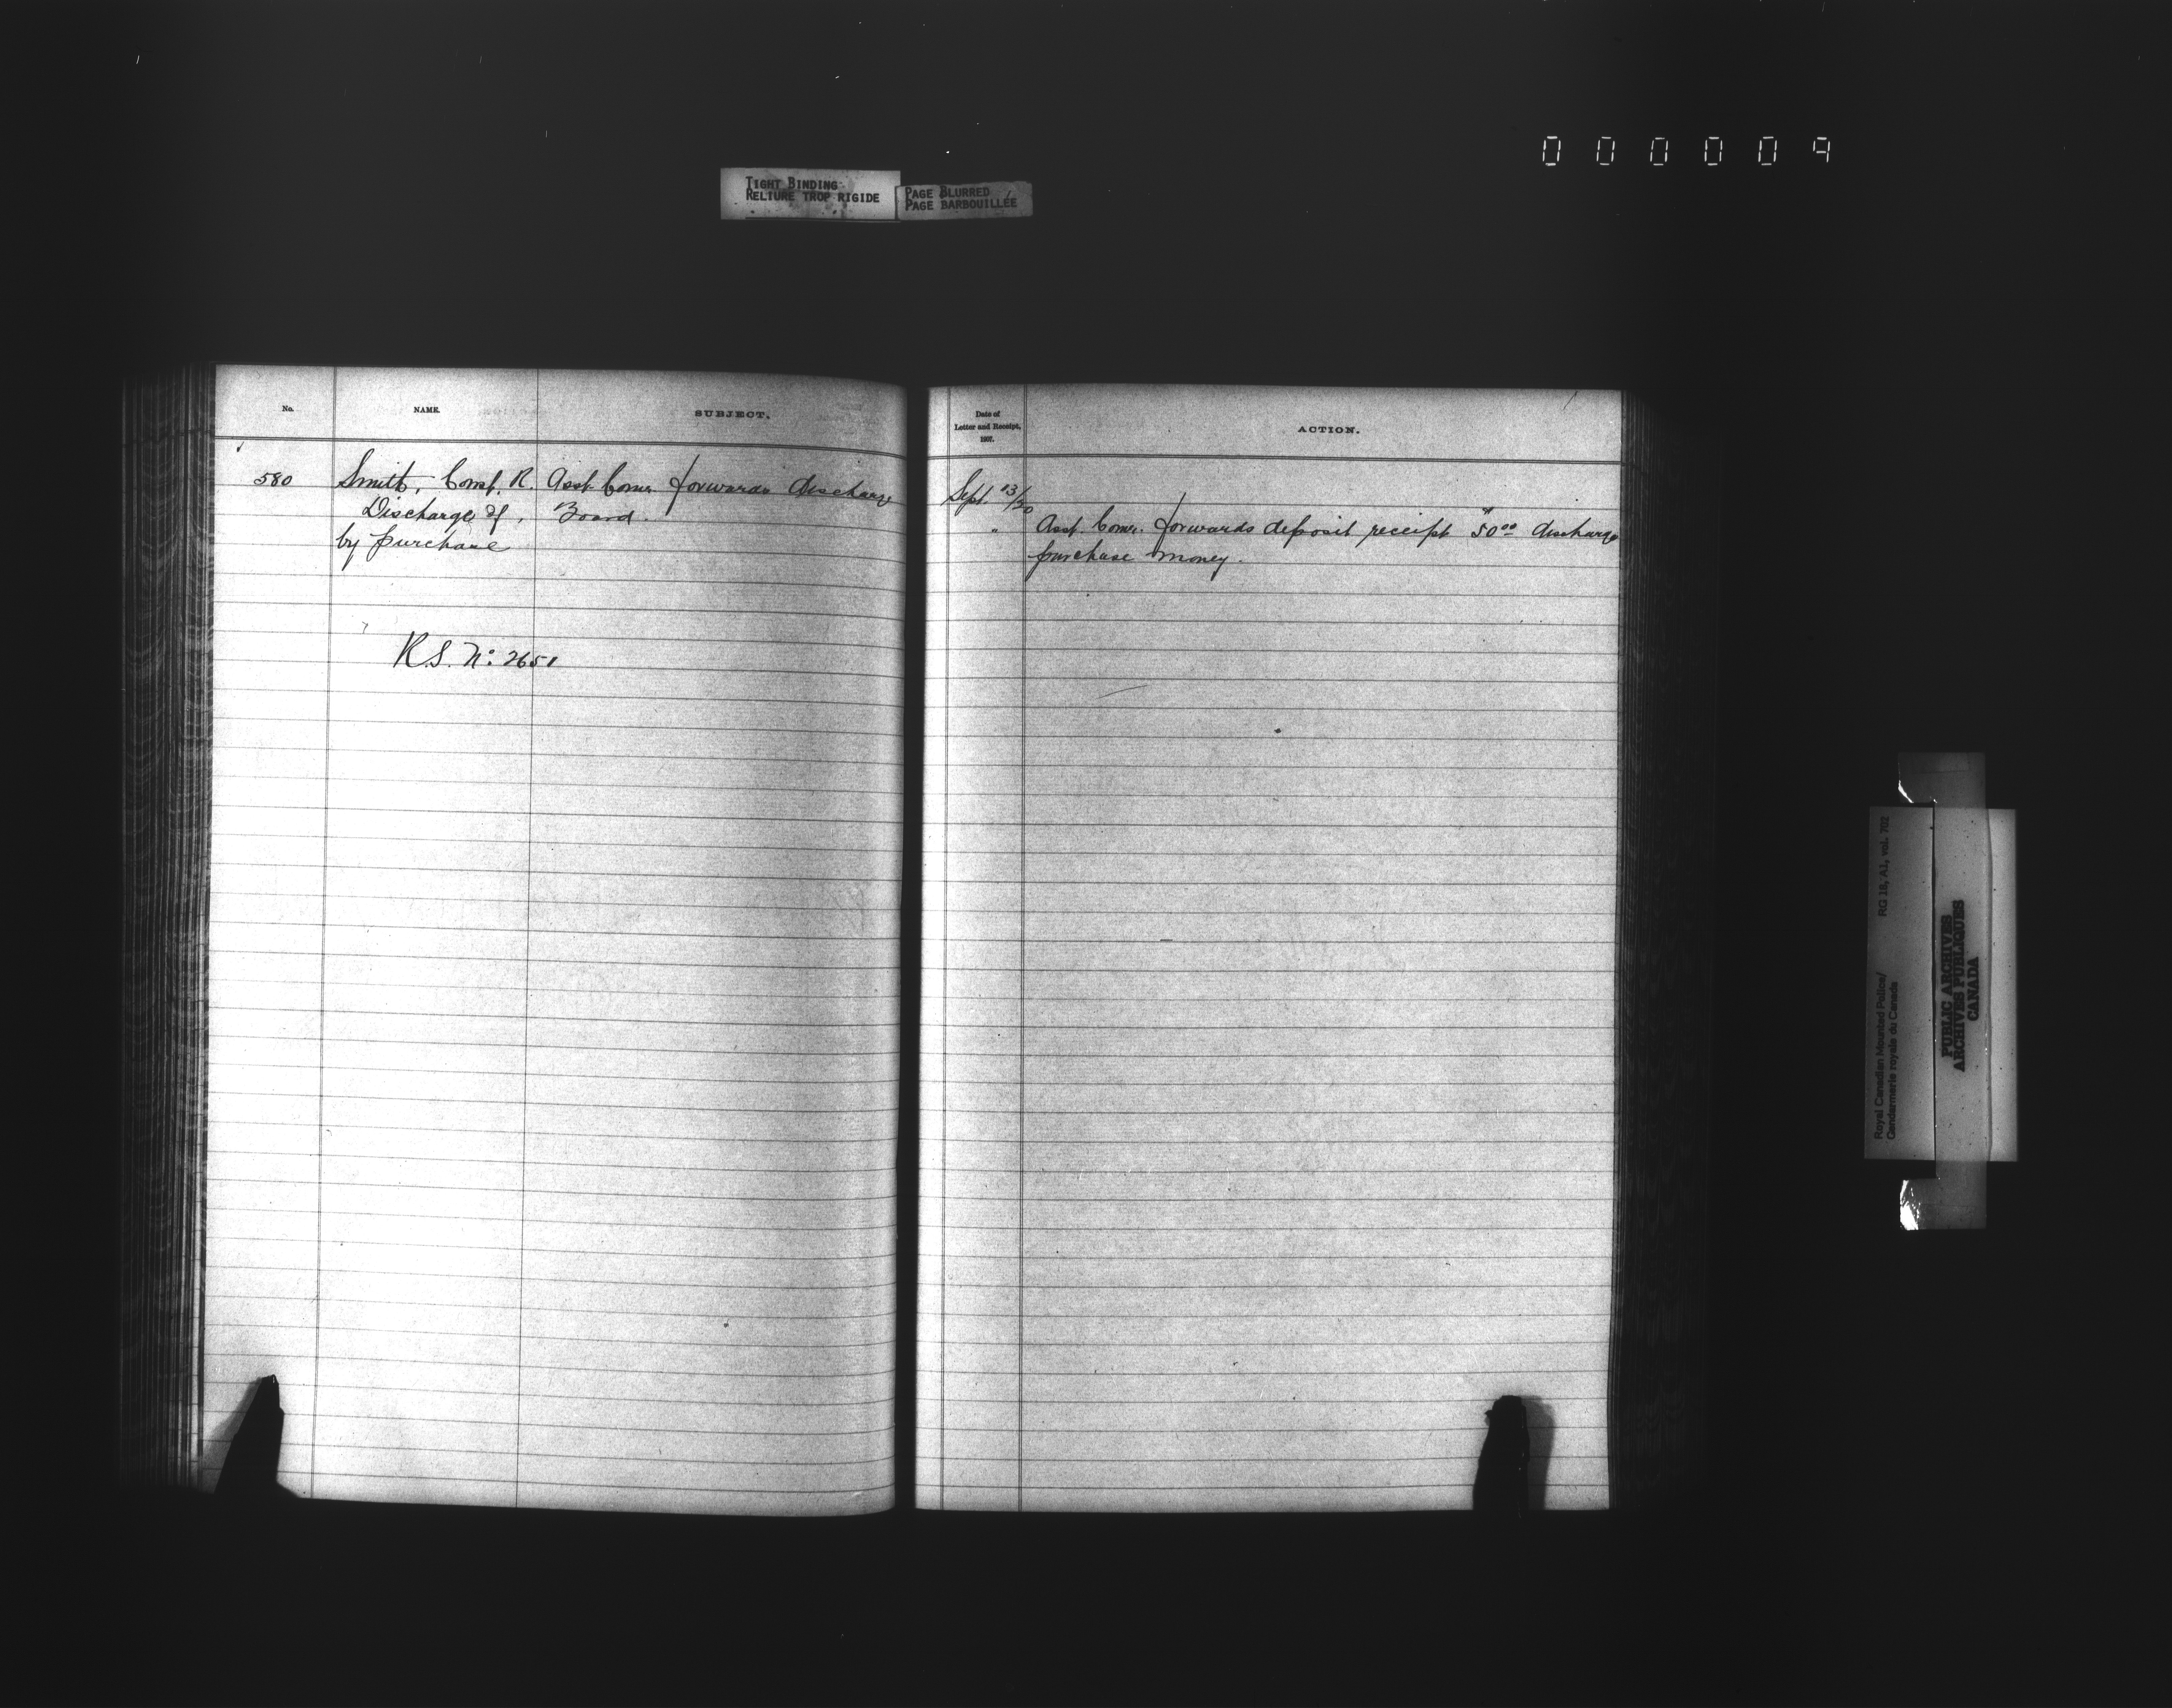 000009
TIGHT BINDING
RELIURE TROP RIGIDE
PAGE BLURRED
PAGE BARBOUILLÉE
No.
NAME.
SUBJECT.
580
Smith, Const. R.
Discharge of,
by purchase
Asst. Comr. forwards discharge
Board.
R.S. No: 2651
Date of
Letter and Receipt,
1907.
ACTION.
Sept. 13/20
"
Asst. Comr. forwards deposit receipt $50.00 discharge
purchase money.
Royal Canadian Mounted Police/
Gendarmerie royale du Canada
RG 18, A1, vol. 702
PUBLIC ARCHIVES
ARCHIVES PUBLIQUES
CANADA